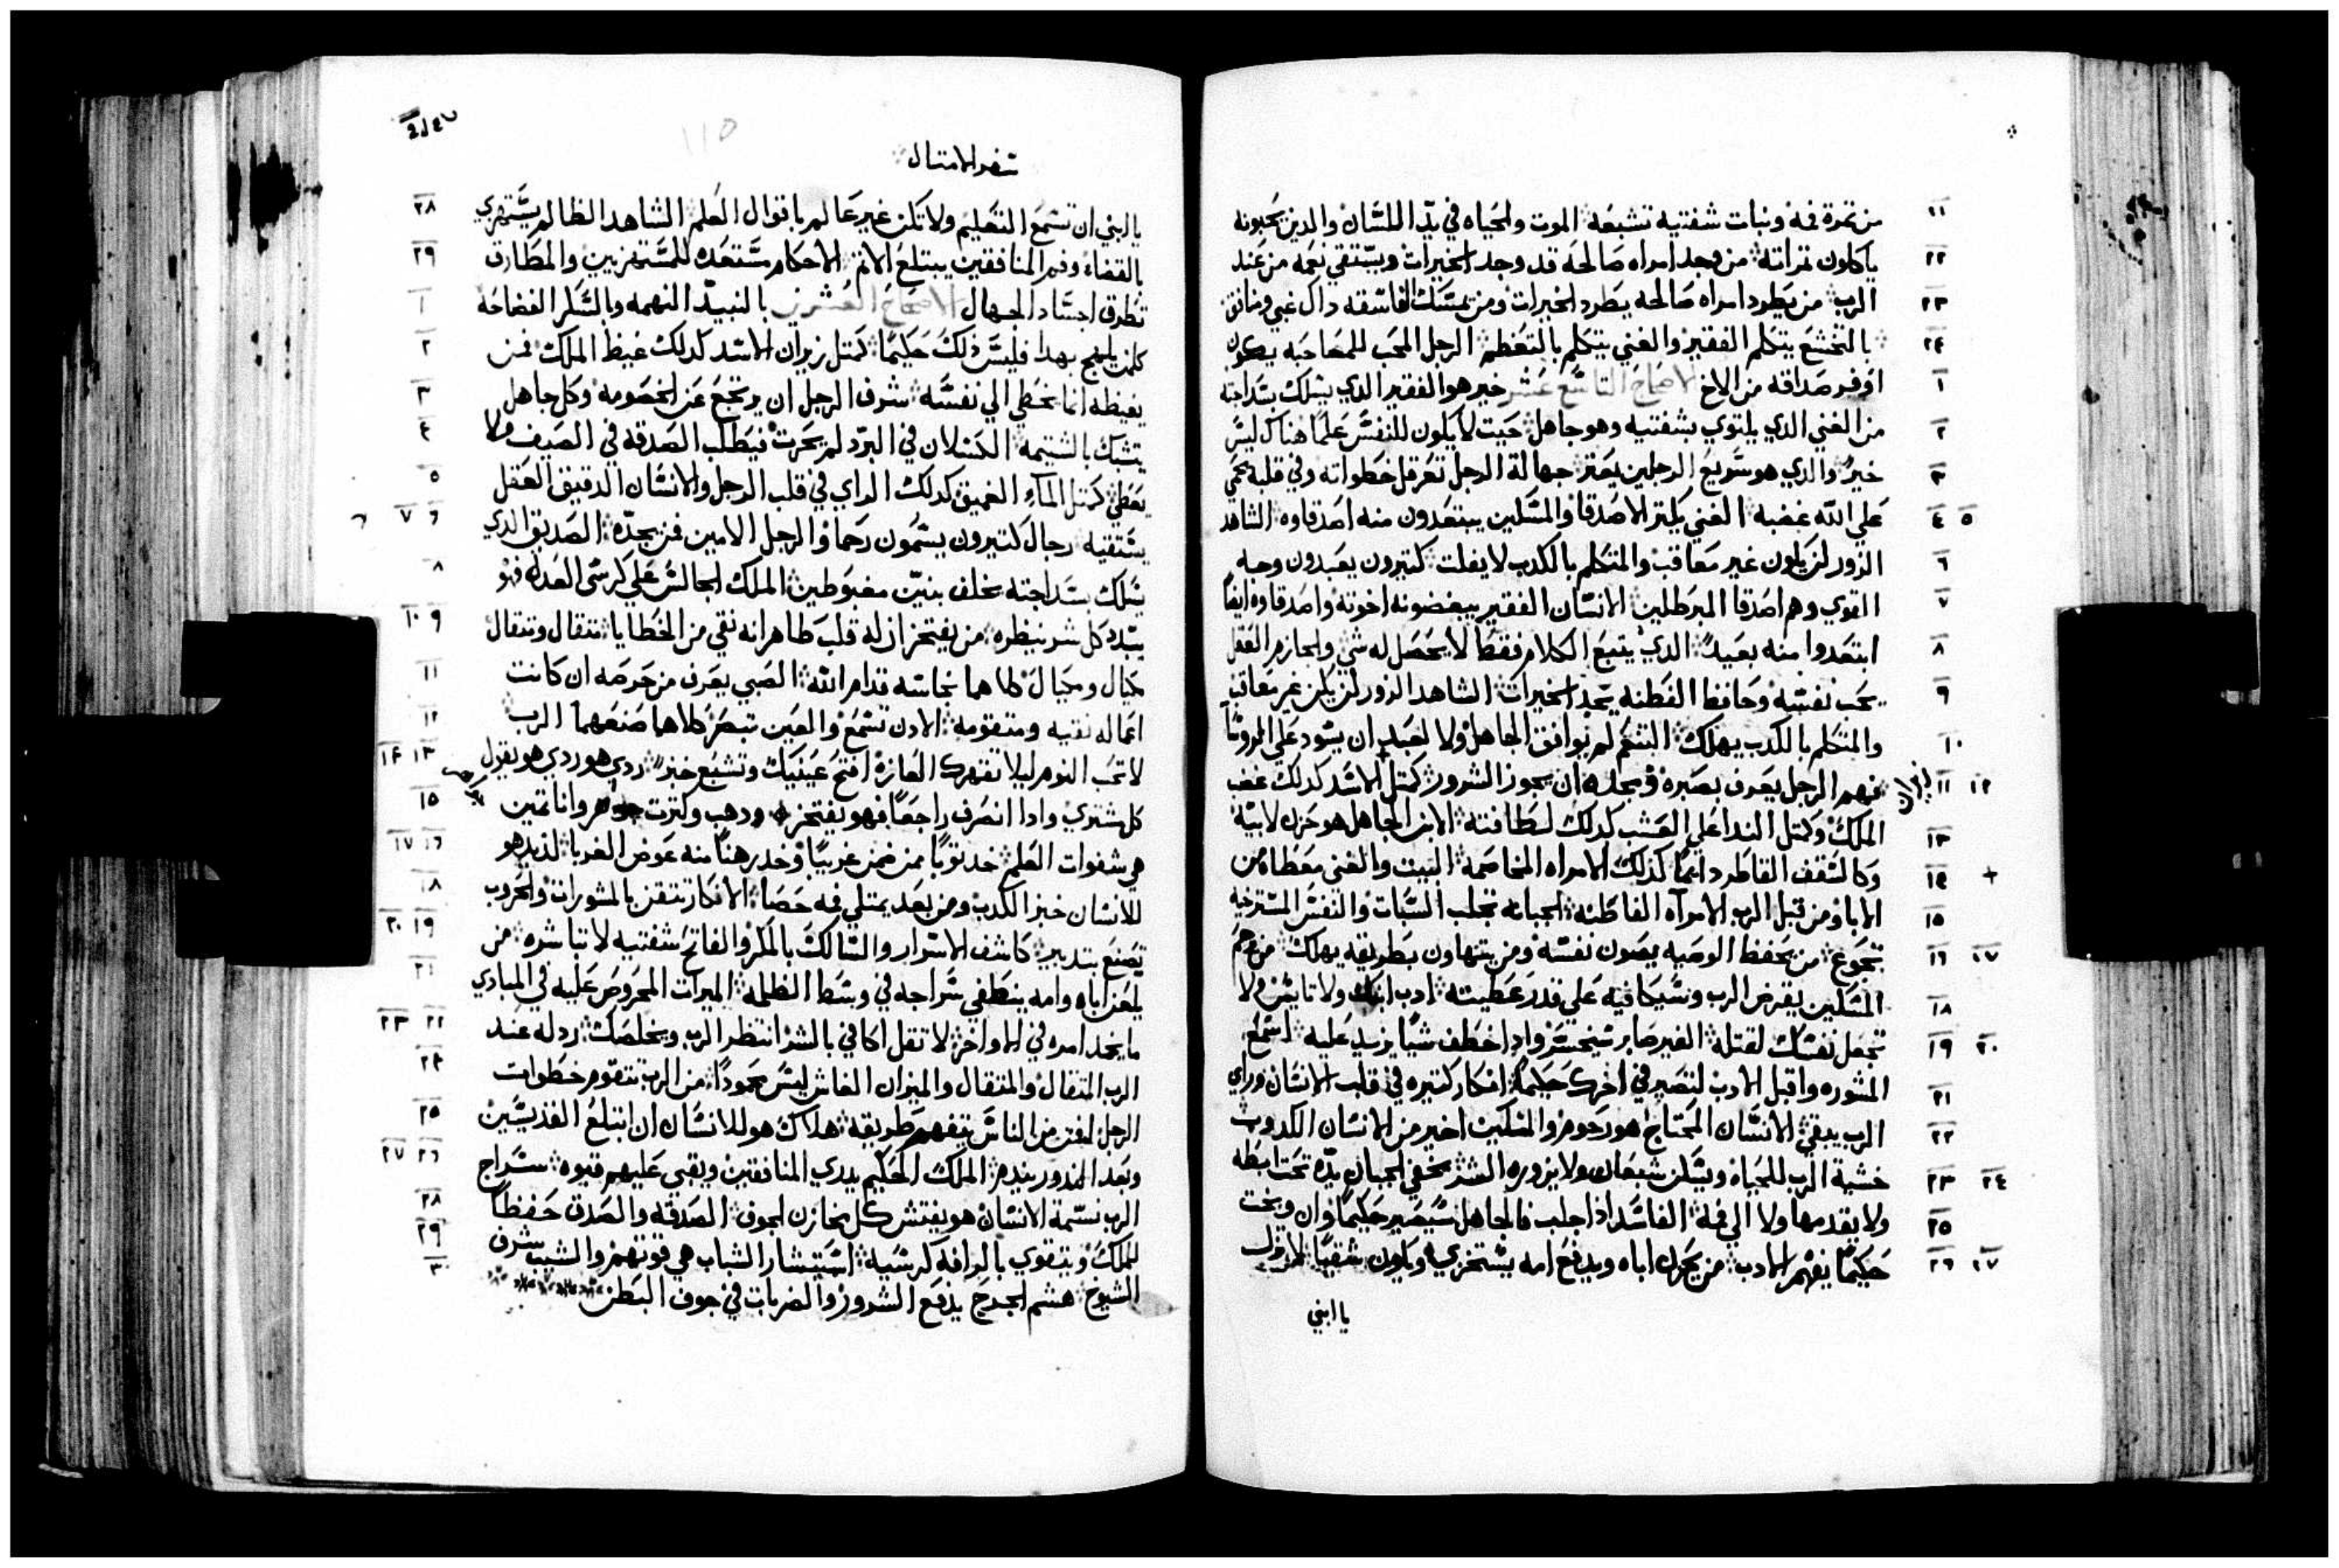 من تمرة فمه ونبات شفتيه تشبعه الموت والحياه في يدّ اللسان والدين يحبونه
ياكلون تمراته من وجد امراه صالحه قد وجد الخيرات ويستقي نعمه من عند
الرب من يطرد امراه صالحه يطرد الخيرات ومن يمسك الفاسقه داك غبي ومنافق
بالتخشع يتكلم الفقير والغني يتكلم بالتعظم الرجل المحب للمصاحبه يكون
اوفر صداقه من الاخ الاصحاح التاسع عشر خير هو الفقير الدي يسلك بسداجته
من الغني الدي يلتوي بشفتيه وهو جاهل حيت لا يكون للنفس علمًا هناك ليس
خير والدي هو سريع الرجلين يعتر جهالة الرجل تعرقل خطواته وفي قلبه يحمي
علي الله غضبه الغني يكتر الاصدقا والمسكين يبتعدون منه اصدقاوه الشاهد
الزور لن يكون غير معاقب والمتكلم بالكدب لا يفلت كتيرون يعبدون وجه
القوي وهم اصدقا المبرطلين الانسان الفقير يبغضونه اخوته واصدقاوه ايضًا
ابتعدوا منه بعيد الدي يتبع الكلام فقط لا يحصل له شي والحازم العقل
يحب نفسه وحافظ الفطنه يجد الخيرات الشاهد الزور لن يكن غير معاقب
والمتكلم بالكدب يهلك التنعم لم يوافق الجاهل ولا لعبد ان يسود علي الروسا
فهم الرجل يعرف بصبره ومجده ان يجوز الشرور كمتل الاسد كدلك غضب
الملك وكمتل الندا علي العشب كدلك لطافته الابن الجاهل هو حزن لابيه
وكالسقف القاطر دايمًا كذلك الامراه المخاصمه البيت والغني معطاه من
الابا ومن قبل الرب الامرآه الفاطنه الجبانه تجلب السبات والنفس المسترخيه
تجوع من يحفظ الوصيه يصون نفسه ومن يتهاون بطريقه يهلك من يرحم
المسكين يقرض الرب وسيكافيه علي قدر عطيته ادب ابنك ولا تايس ولا
تجعل نفسك لقتله الغير صابر سيخسر وادا خطف شيًا يزيد عليه اسمع
المشوره واقبل الادب لتصير في اخرك حكيمًا افكار كتيره في قلب الانسان وراي
الرب يبقي الانسان المحتاج هو رحوم والمسكين اخير من الانسان الكدوب
خشية الرب للحياه ويسكن شبعان ولا يزوره الشر يخفي الجبان يدّه تحت ابطه
ولا يقدمها ولا الي فمه الفاسد اذا جلب فالجاهل سيصير حكيمًا وان وبخت
حكيمًا يفهم الادب من يحزن اباه ويدفع امه يستخزي ويكون شقيًا لا تزل
يا ابني
سفر الامتال
يا ابني ان تسمع التعليم ولا تكن غير عالم باقوال العلم الشاهد الظالم يستهزي
بالقضاء وفم المنافقين يبتلع الاتم الاحكام مستعده للمستهزيين والمطارق
تطرق اجساد الجهال الاصحاح العشرين بالنبيد النهمه وبالسكر الفضاحه
كلمن يلهج بهدا فليس ذلك حكيمًا كمتل زيران الاسد كدلك غيظ الملك فمن
يغيظه انما يخطي الي نفسه شرف الرجل ان يرتجع عن الخصومه وكل جاهل
يتشبك بالشتيمه الكسلان في البرد لم يحرت فيطلب الصدقه في الصيف ولا
يعطي كمتل المآء العميق كدلك الراي في قلب الرجل والانسان الدقيق العقل
يستقيه رجال كتيرون يسمون رحما والرجل الامين فمن يجدّه الصديق الدي
يسلك بسداجته يخلف بنين مغبوطين الملك الجالس علي كرسي العداله فهو
يبدد كل شر بنظره من يفتخر ان له قلب طاهر انه نقي من الخطايا متقال ومتقال
مكيال ومكيال كلاهما نجاسه قدام الله الصبي يعرف من حرصه ان كانت
اعماله نقيه ومتقومه الادن تسمع والعين تبصر كلاهما صنعهما الرب
لا تحب النوم ليلا تقهرك العازه افتح عينيك وتشبع خبز ردي هو ردي هو يقول
كل مشتري وادا انصرف راجعًا فهو يفتخر ودهب وكترت جواهر واناتمين
هي شفوات العلم خد توبًا ممن ضمن غريبًا وخد رهنًا منه عوض الغربا لذيد هو
للانسان خبز الكدب ومن بعد يمتلي فمه حصا الافكار تتقن بالمشورات والحروب
تصنع بتدبير كاشف الاسرار والسالك بالمكر والفاتح شفتيه لا تباشره من
يلعن اباه وامه ينطفي سراجه في وسط الظلمه الميرات المحروص عليه في المبادي
ما يحمد امره في الاواخر لا تقل اكافي بالشر انتظر الرب ويخلصك ردله عند
الرب المتقال والمتقال والميزان الغاش ليس محمودًا من الرب تتقوم خطوات
الرجل فمن من الناس يتفهم طريقه هلاك هو للانسان ان ابتلع القديسين
وبعد الندور يندم الملك الحكيم يدري المنافقين ويقبي عليهم قبوه سراج
الرب نسمة الانسان هو يفتش كل مخازن الجوف الصدقه والصدق حفظا
للملك ويتقوي بالرافه كرسيه استبشار الشباب هي قوتهم والشيب شرف
الشيوخ هشم الجدح يدفع الشرور والضربات في جوف البطن